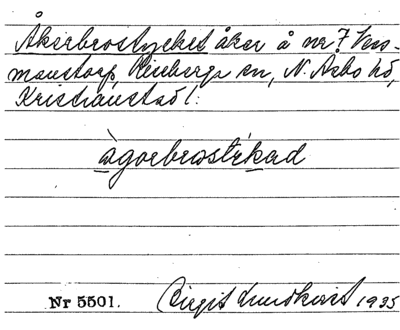 Åkerbrostycket åker å nr 7 Vess-
manstorp, Riseberga sn, N. Åsbo hd,
Kristianstad l:
ågorbrostikad
Nr 5501. Birgit Lundkvist 1935